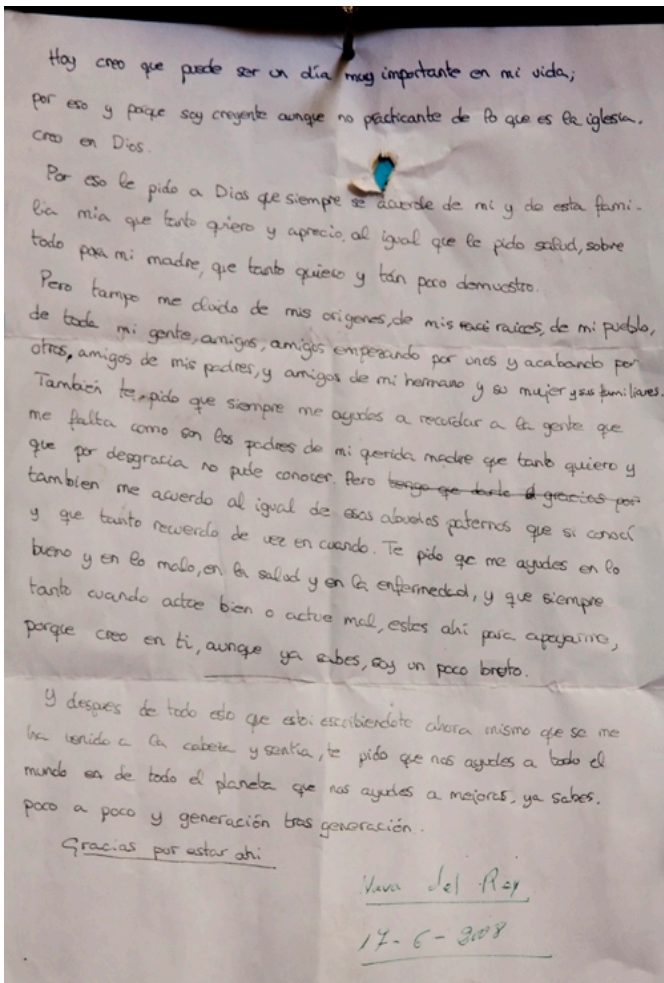 Hoy creo que puede ser un día muy importante en mi vida;
por eso y porque soy creyente aunque no practicante de lo que es la iglesia.
creo en Dios.
Por eso le pido a Dios que siempre se acuerde de mí y de esta fami-
lia mia que tanto quiero y aprecio, al igual que le pido salud, sobre
todo para mi madre, que tanto quiero y tán poco demuestro.
Pero tampo me olvido de mis orígenes, de mis raices, de mi pueblo,
de toda mi gente, amigos, amigos empezando por unos y acabando por
otros, amigos de mis padres, y amigos de mi hermano y su mujer y sus familiares.
También te pido que siempre me ayudes a recordar a la gente que
me falta como son los padres de mi querida madre que tanto quiero y
que por desgracia no pude conocer. Pero tengo que darle gracias por
tambien me acuerdo al igual de esos abuelos paternos que si conocí
y que tanto recuerdo de vez en cuando. Te pido qe me ayudes en lo
bueno y en lo malo, en la salud y en la enfermedad, y que siempre
tanto cuando actue bien o actue mal, estes ahí para apoyarme,
porque creo en ti, aunque ya sabes, soy un poco bruto.
Y despues de todo esto que estoi escribiendote ahora mismo que se me
ha venido a la cabeza y sentía, te pido que nos ayudes a todo el
mundo en de todo el planeta que nos ayudes a mejorar, ya sabes.
poco a poco y generación tras generación.
Gracias por estar ahi
del Rey
17-6-2008